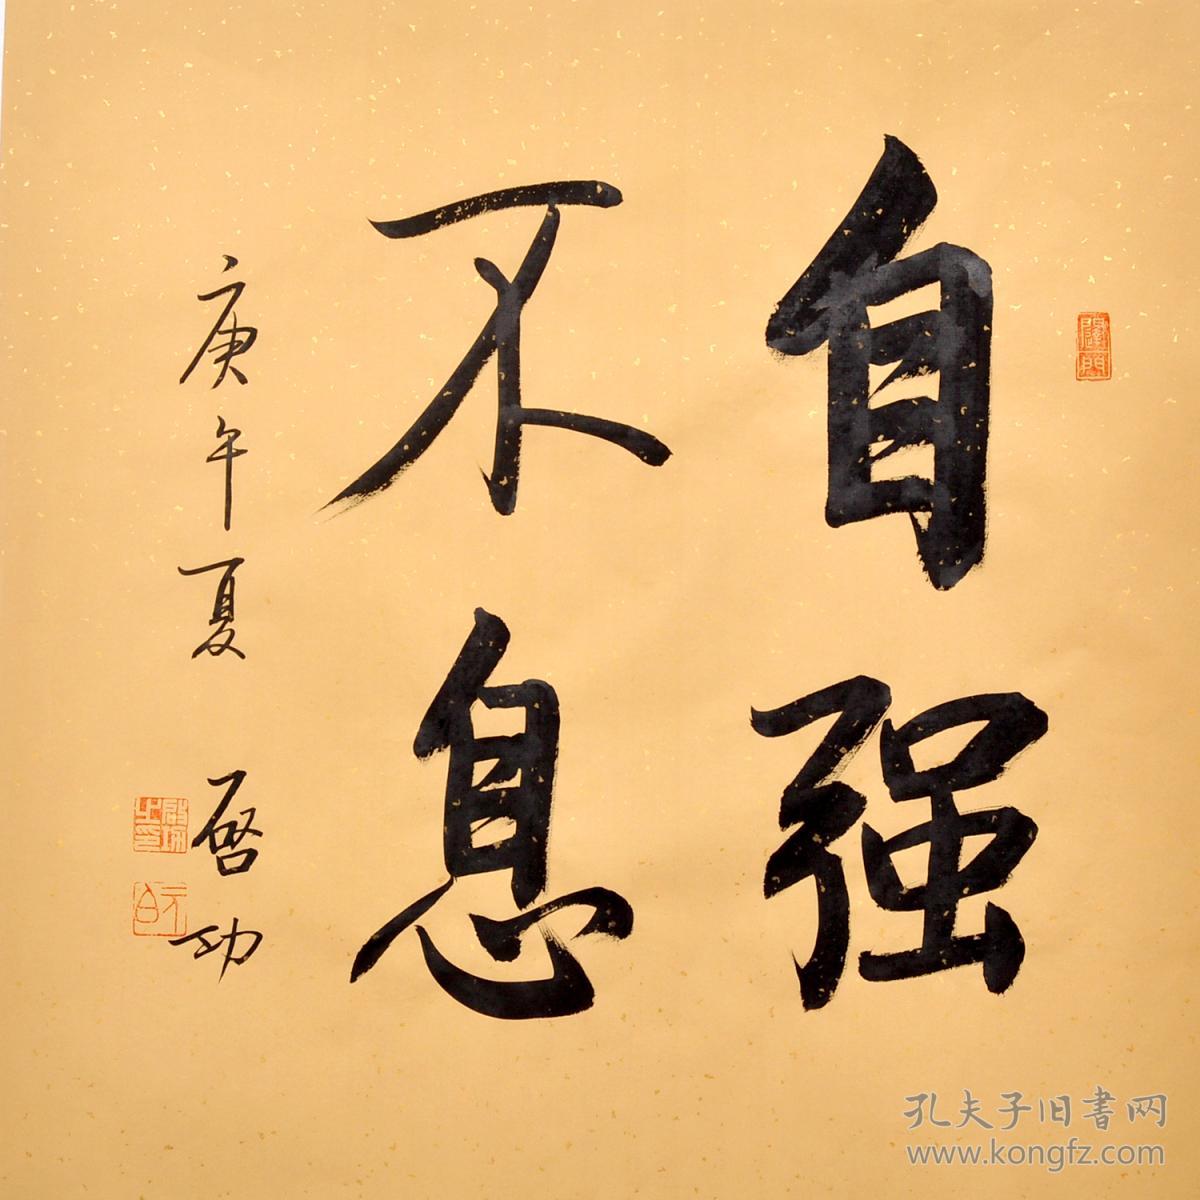 自强
不息
庚午夏 启功
元白
孔夫子旧书网
www.kongfz.com